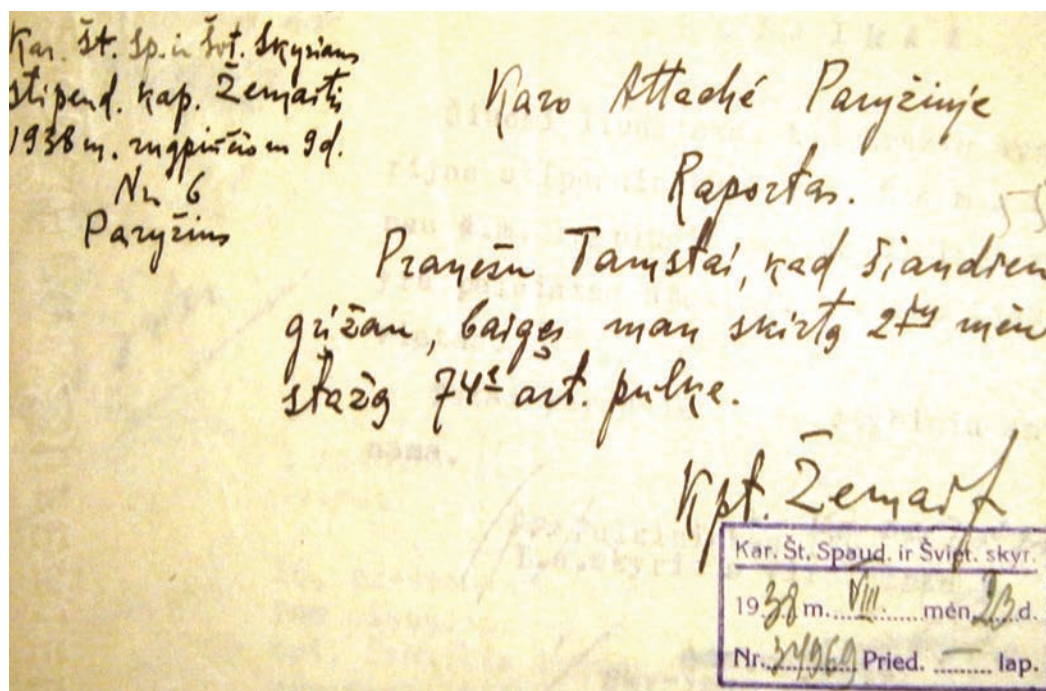 Kar. Št. Sp. ir Švt. Skyriaus
stipend. kap. Žemaitis
1938 m. rugpiučio m 9 d.
Nr 6
Paryžius
Karo Attaché Paryžiuje
Raportas.
Pranešu Tamstai, kad šiandien
grįžau, baigęs man skirtą 2jų mėn
stažą 74s art. pulke.
Kpt. Žemait
Kar. Št. Spaud. ir Šviet. skyr.
1938 m. VIII. mėn. 23 d.
Nr. Pried. — lap.
nama.